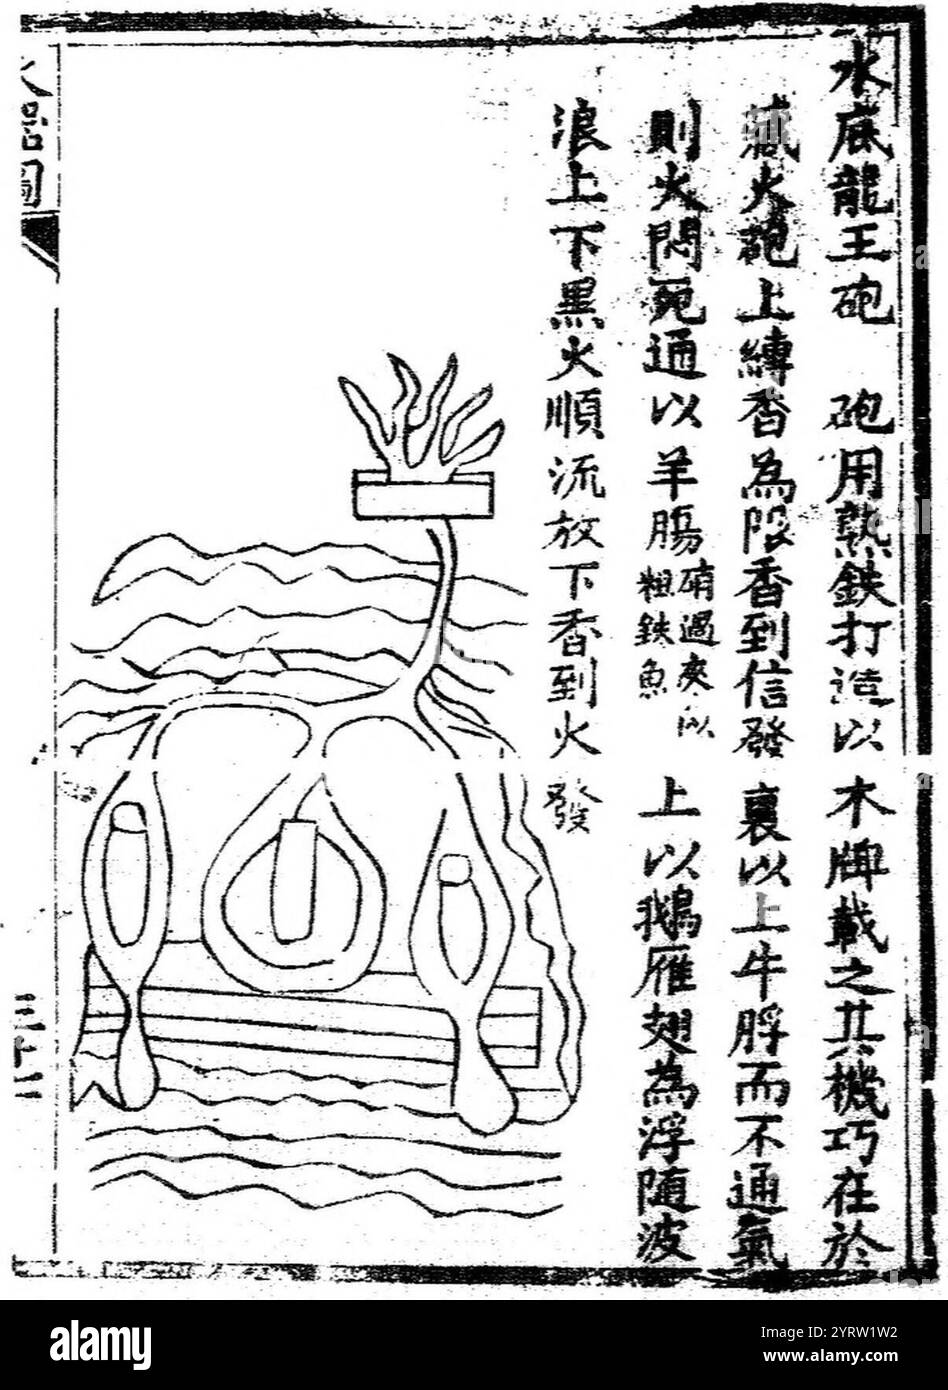 水底龍王砲 砲用熟鉄打造以木牌載之其機巧在於
藏火砲上縳香為限香到信發裏以上牛脬而不通氣
則火悶死通以羊腸硝過夾以粗鉄魚上以鵝雁翅為浮随波
浪上下黑火順流放下香到火發
火器圖
三十二
alamy
Image ID: 2YRW1W2
www.alamy.com